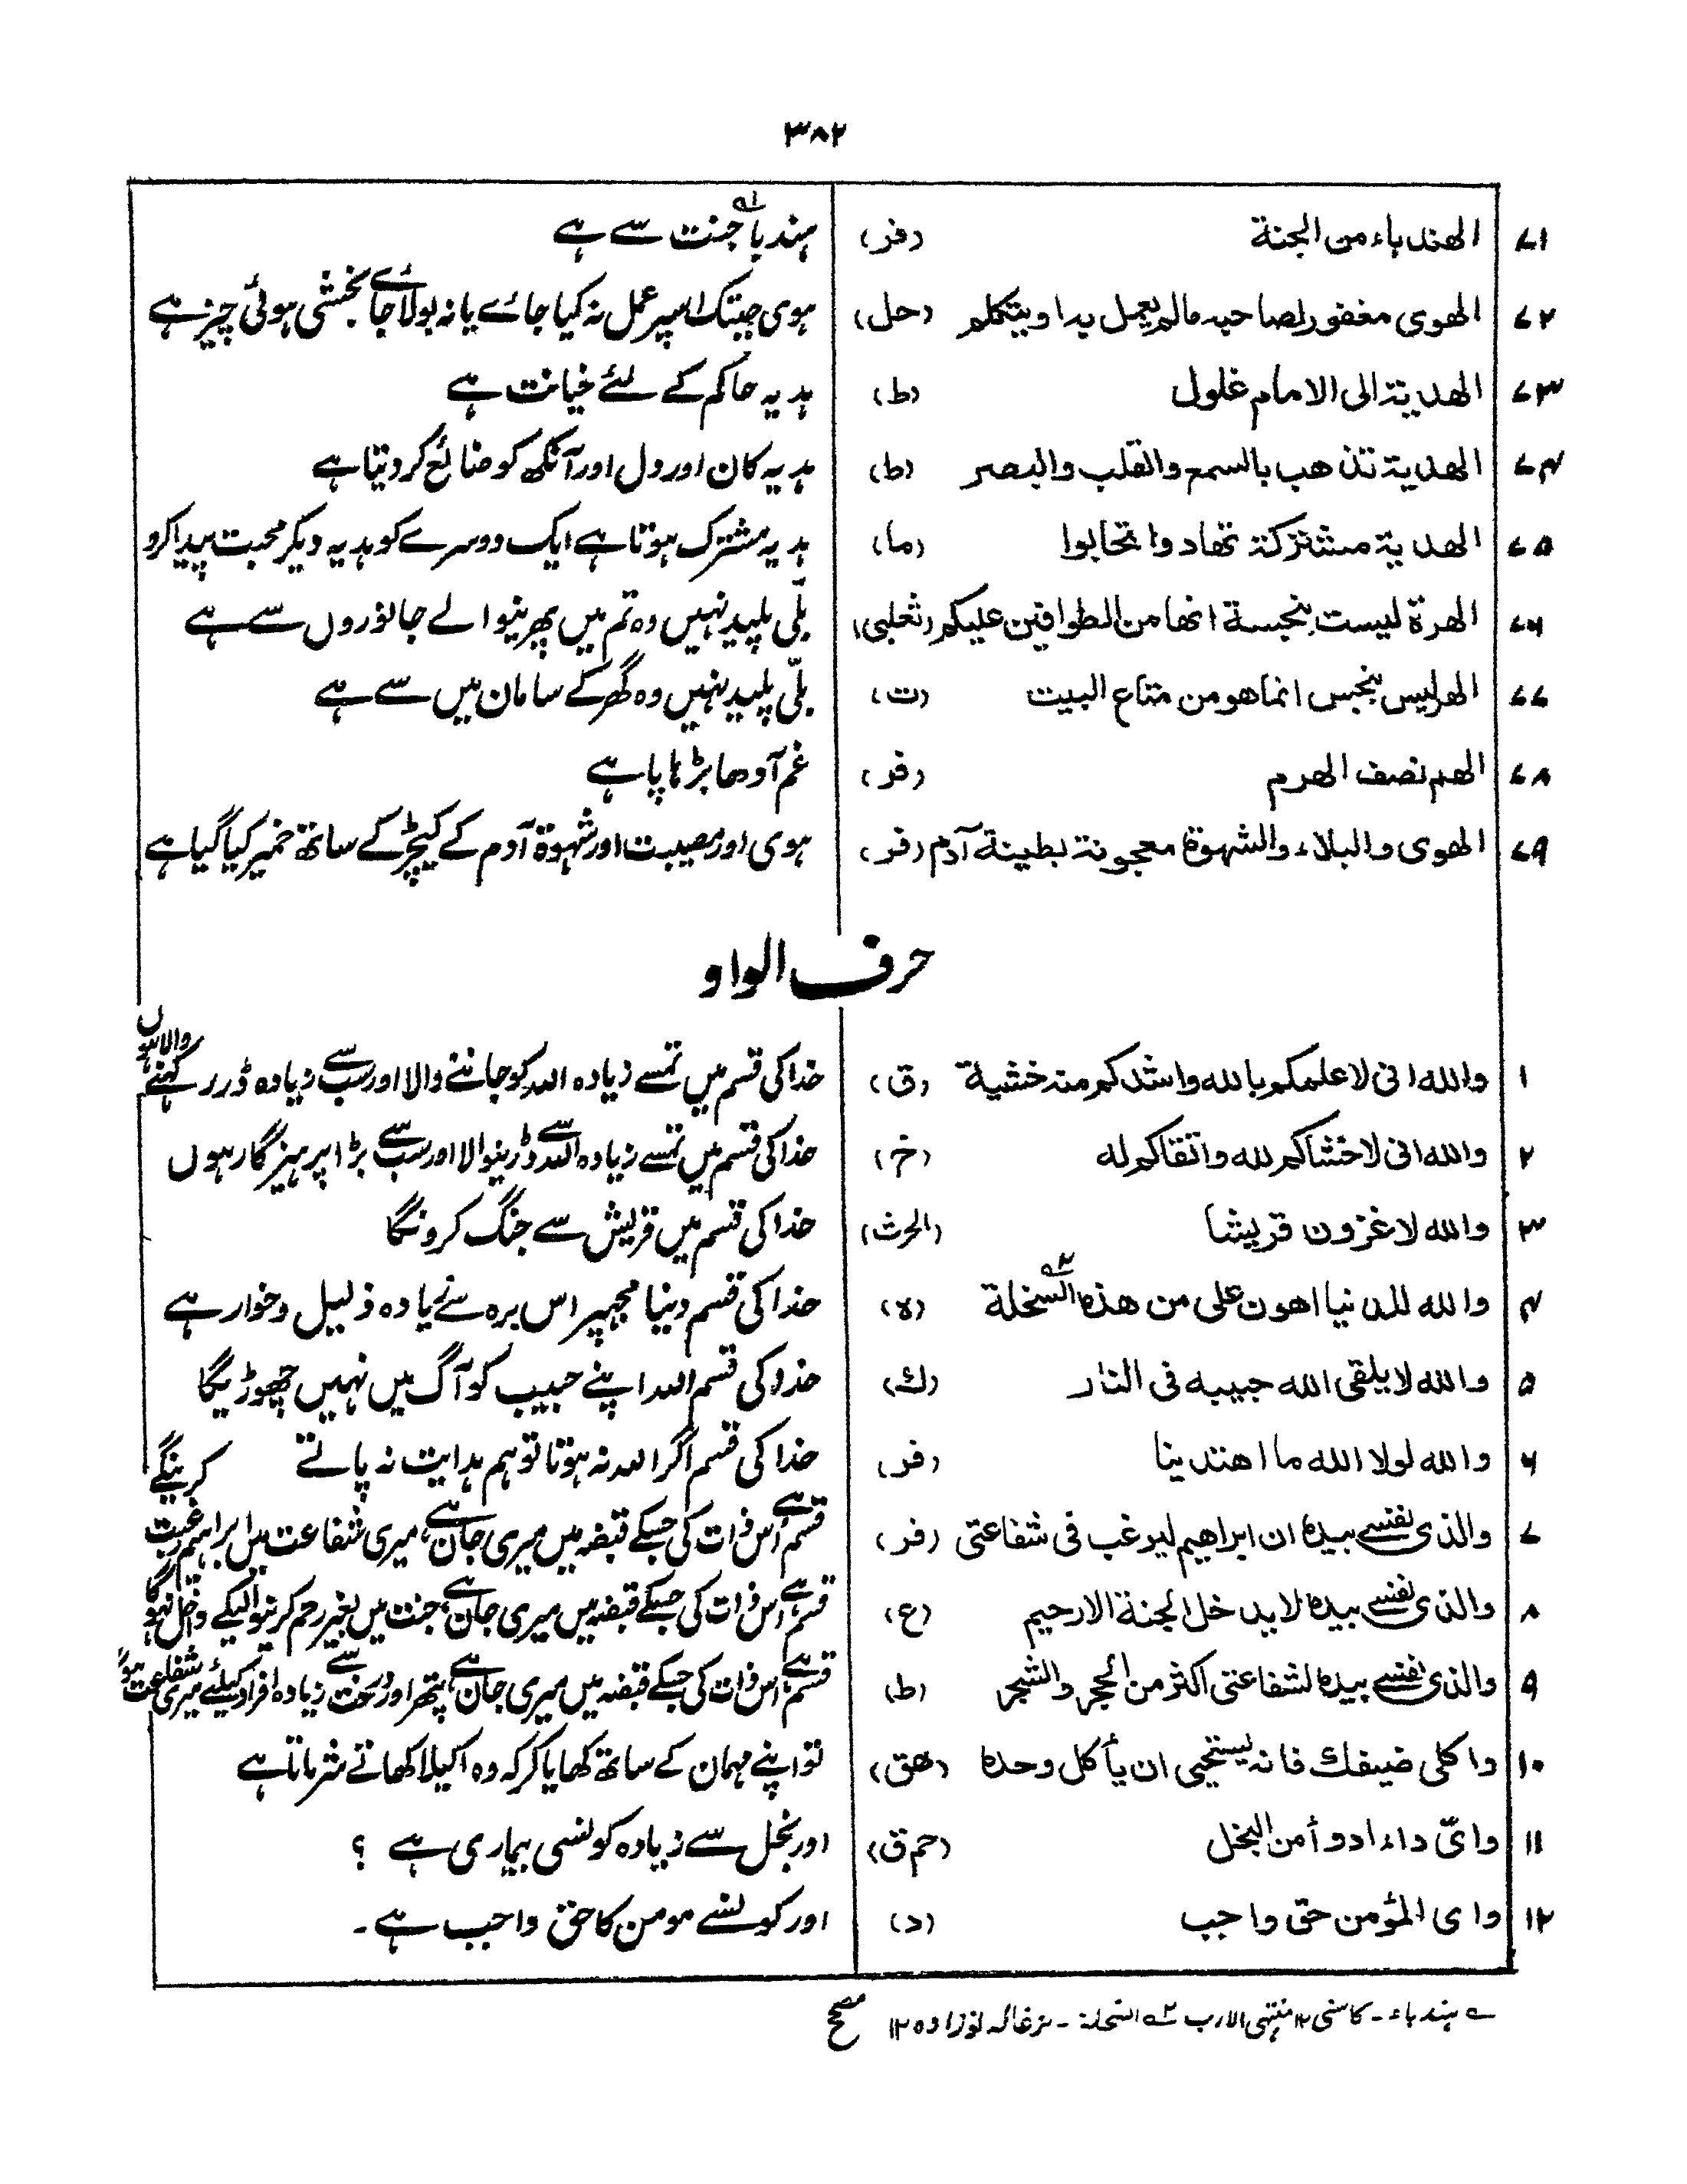 ۳۸۲
۷۱ الهندباء من الجنة (فر) ہندبا۱ؔ جنت سے ہے
۷۲ الهوى مغفور لصاحبه مالم يعمل به او يتكلم (حل) ہوی جبتک اسپر عمل نہ کیا جائے یا نہ بولا جائے بخشی ہوئی چیز ہے
۷۳ الهدية الى الامام غلول (ط) ہدیہ حاکم کے لئے خیانت ہے
۷۴ الهدية تذهب بالسمع والقلب والبصر (ط) ہدیہ کان اور دل اور آنکھ کو ضائع کر دیتا ہے
۷۵ الهدية مشتركة تهادوا تحابوا (ما) ہدیہ مشترک ہوتا ہے ایک دوسرے کو ہدیہ دیکر محبت پیدا کرو
۷۶ الهرة ليست بنجسة انها من الطوافين عليكم (ثعلبی) بلّی پلید نہیں وہ تم میں پھرنیوالے جانوروں سے ہے
۷۷ الهر ليس بنجس انما هو من متاع البيت (ت) بلّی پلید نہیں وہ گھر کے سامان میں سے ہے
۷۸ الهم نصف الهرم (فر) غم آدھا بڑھاپا ہے
۷۹ الهوى والبلاء والشهوة معجونة بطينة آدم (فر) ہوی اور مصیبت اور شہوۃ آدم کے کیچڑ کے ساتھ خمیر کیا گیا ہے
حرف الواو
۱ والله انى لاعلمكم بالله واشدكم منه خشية (ق) خدا کی قسم میں تمسے زیادہ اللہ کو جاننے والا اور سب سے زیادہ ڈر رکھنے والا ہوں
۲ والله انى لاخشاكم لله واتقاكم له (خ) خدا کی قسم میں تمسے زیادہ اللہ سے ڈرنیوالا اور سب سے بڑا پرہیزگار ہوں
۳ والله لاغزون قريشا (الحرث) خدا کی قسم میں قریش سے جنگ کرونگا
۴ والله للدنيا اهون على من هذه السخلة۲ؔ (ہ) خدا کی قسم دنیا مجھپر اس برہ سے زیادہ ذلیل و خوار ہے
۵ والله لا يلقى الله حبيبه فى النار (ك) خدا کی قسم اللہ اپنے حبیب کو آگ میں نہیں چھوڑیگا
۶ والله لولا الله ما اهتدينا (فر) خدا کی قسم اگر اللہ نہ ہوتا تو ہم ہدایت نہ پاتے
۷ والذى نفسے بيده ان ابراهيم ليرغب فى شفاعتى (فر) قسم ہے اس ذات کی جسکے قبضہ میں میری جان ہے، میری شفاعت میں ابراہیم رغبت کرینگے
۸ والذى نفسے بيده لا يدخل الجنة الا رحيم (ع) قسم ہے اس ذات کی جسکے قبضہ میں میری جان ہے، جنت میں بغیر رحم کرنیوالیکے داخل نہوگا
۹ والذى نفسے بيده لشفاعتى اكثر من الحجر والشجر (ط) قسم ہے اس ذات کی جسکے قبضہ میں میری جان ہے، پتھر اور درخت سے زیادہ افراد کیلئے میری شفاعت ہوگی
۱۰ واكلى ضيفك فانه يستحيى ان يأكل وحده (هق) تو اپنے مہمان کے ساتھ کھایا کر کہ وہ اکیلا کھاتے شرماتا ہے
۱۱ واىّ داء ادوأ من البخل (حم ق) اور بخل سے زیادہ کونسی بیماری ہے ؟
۱۲ واى المؤمن حق واجب (د) اور کونسے مومن کا حق واجب ہے۔
۱ؔ ہندباء ۔ کاسنی ۱۲ منتہی الارب ۲ؔ السخلة ۔ بزغالہ نوزادہ ۱۲ مصحح